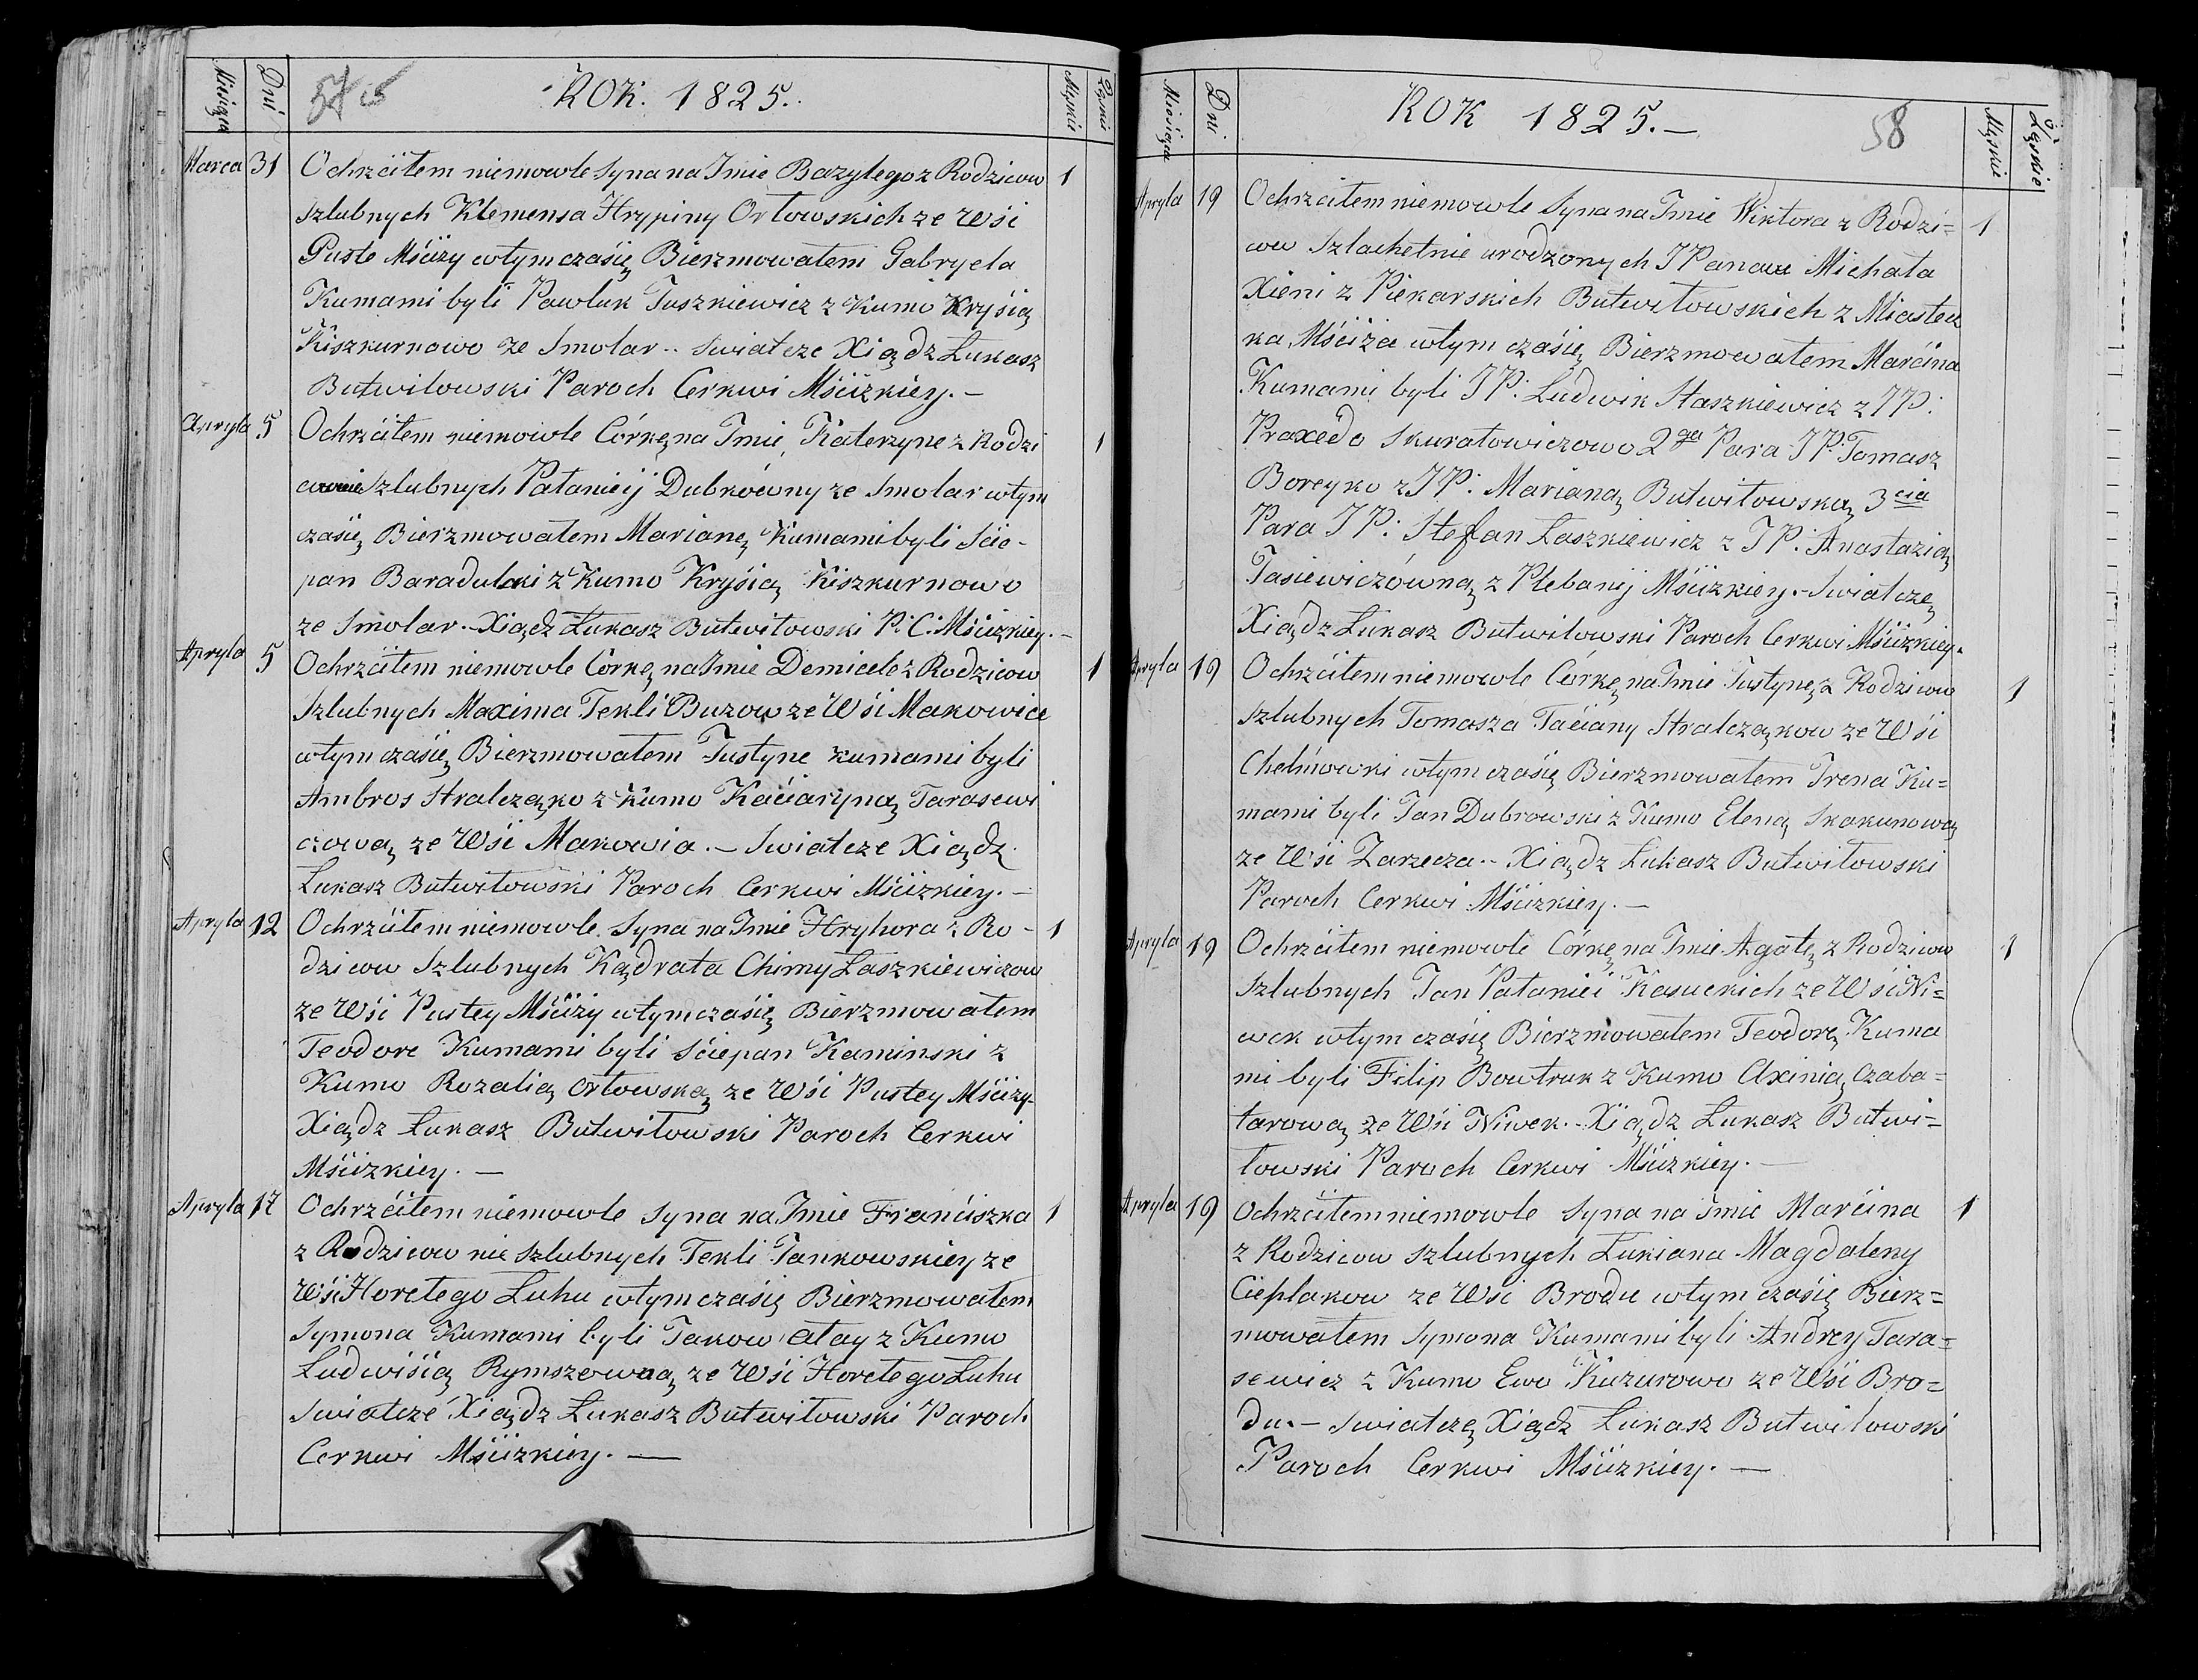 Miesiąca Dni ROK. 1825. Męskie Żęskie
Marca 31 Ochrzciłem niemowle Syna na Imie Bazylego z Rodzicow 1
szlubnych Klemensa Hrypiny Orłowskich ze Wśi
Puste Mśćiży wtym czaśię Bierzmowałem Gabryela
Kumami byli Pawluk Juszkiewicz z Kumo Kryśią
Kiszkurnowo ze Smolar.. Swiatcze Xiądz Łukasz
Butwiłowski Paroch Cerkwi Mśćizkiey. –
Apryla 5 Ochrzćiłem niemowle Córkę na Imie, Katerzyne z Rodzi 1
szlubnych Pałaniéij Dubkówny ze Smolar wtym
czaśię Bierzmowałem Mariane, Kumami byli Śćie-
pan Baradulski z Kumo Kryśią Kiszkurnowo
ze Smolar. Xiądz Łukasz Butwiłowski P: C: Mśćizkiey. –
Apryla 5 Ochrzćiłem niemowle Córkę na Imie Demicele z Rodzicow 1
Szlubnych Maxima Tekli Buzow ze Wśi Makowice
wtym czaśię Bierzmowałem Justyne kumami byli
Ambros Stralczązko z Kumo Kaćiaryną Tarasewi
czową ze Wśi Makowia. – Swiatcze Xiądz
Łukasz Butwiłowski Paroch Cerkwi Mśćizkiey. –
Apryla 12 Ochrzćiłem niemowle Syna na Imie Hryhora z Ro- 1
dzicow Szlubnych Kądrata Chimy Łaszkiewiczow
ze Wśi Pustey Mśćiży wtym czaśię Bierzmowałem
Teodore Kumami byli Śćiepan Kaminski z
Kumo Rozalią Orłowską ze Wśi Pustey Mśćiży.
Xiądz Łukasz Butwiłowski Paroch Cerkwi
Mśćizkiey. –
Apryla 17 Ochrzćiłem niemowle Syna na Imie Franćiszka 1
z Rodzicow nie szlubnych Tekli Jankowskiey ze
Wśi Horełego Łuhu wtym czaśię Bierzmowałem
Symona Kumami byli Jakow Ałay z Kumo
Ludwiśią Rymszowną ze Wśi Horełego Łuhu
Swiatcze Xiądz Łukasz Butwiłowski Paroch
Cerkwi Mśćizkiey. –
Miesiąca Dni ROK 1825. – 58 Męskie Żęskie
Apryla 19 Ochrzciłem niemowle Syna na Imie Wiktora z Rodzi= 1
cow Szlachetnie urodzonych JPanow Michała
Xieni z Piekarskich Butwiłowskich z Miastecz
ka Mśćiża wtym czaśię Bierzmowałem Marćina
Kumami byli JP: Ludwik Staszkiewicz z JP:
Praxedo Skuratowiczowo 2ga Para JP: Tomasz
Boreyko z JP: Marianą Butwiłowską 3cia
Para JP: Stefan Łaszkiewicz z JP: Anastazią
Jasiewiczówną z Plebanij Mśćizkiey. – Swiatczę
Xiądz Łukasz Butwiłowski Paroch Cerkwi Mśćizkiey.
Apryla 19 Ochrzćiłem niemowle Córkę na Imie Justynę z Rodzicow 1
szlubnych Tomasza Taćiany Stralcząkow ze Wśi
Chelmowki wtym czaśię Bierzmowałem Irena Ku=
mami byli Jan Dubrowski z Kumo Eleną Skakunową
ze Wśi Zarzecza. – Xiądz Łukasz Butwiłowski
Paroch Cerkwi Mśćizkiey. –
Apryla 19 Ochrzćiłem niemowle Córkę na Imie Agatę z Rodzicow 1
szlubnych Jan Pałaniei Kasuckich ze Wśi Ni=
wek wtym czaśię Bierzmowałem Teodorę Kuma
mi byli Filip Bowtruk z Kumo Axinią Czaba=
tarową ze Wśi Niwek. – Xiądz Łukasz Butwi=
łowski Paroch Cerkwi Mśćizkiey. –
Apryla 19 Ochrzćiłem niemowle Syna na Imie Marćina 1
z Rodzicow szlubnych Łukiana Magdaleny
Ciepłakow ze Wśi Brodu wtym czaśię Bierz=
mowałem Symona Kumami byli Andrey Tara=
sewicz z Kumo Ewo Kuzurowo ze Wśi Bro=
du. – Swiatczę Xiądz Łukasz Butwiłowski
Paroch Cerkwi Mśćizkiey. –